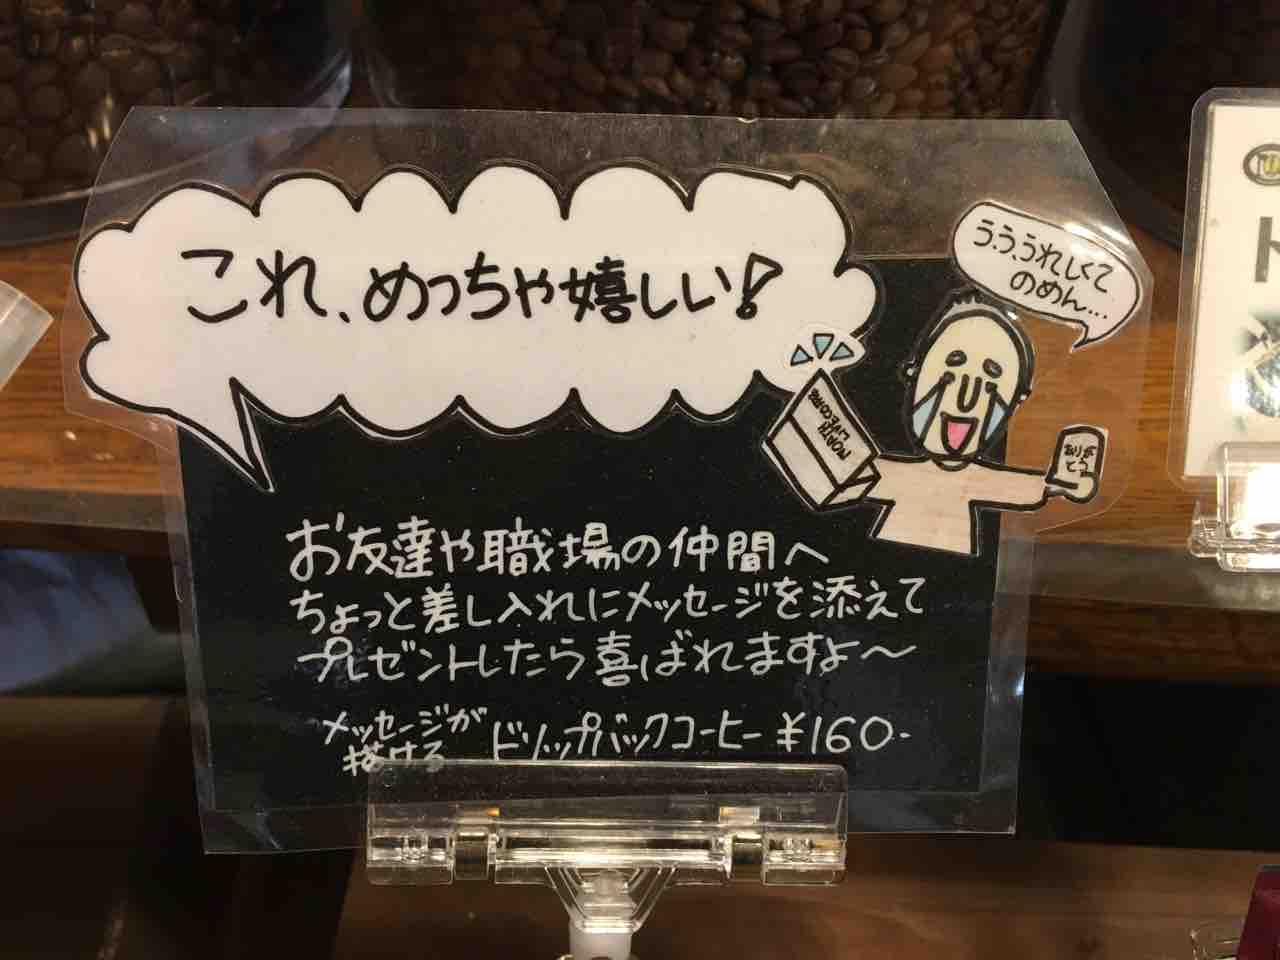 これ、めっちゃ嬉しい!
う、う、うれしくて
のめん...
ありが
とう
お友達や職場の仲間へ
ちょっと差し入れにメッセージを添えて
プレゼントしたら喜ばれますよ〜
メッセージが
描ける
ドリップバックコーヒー ¥160-
ド